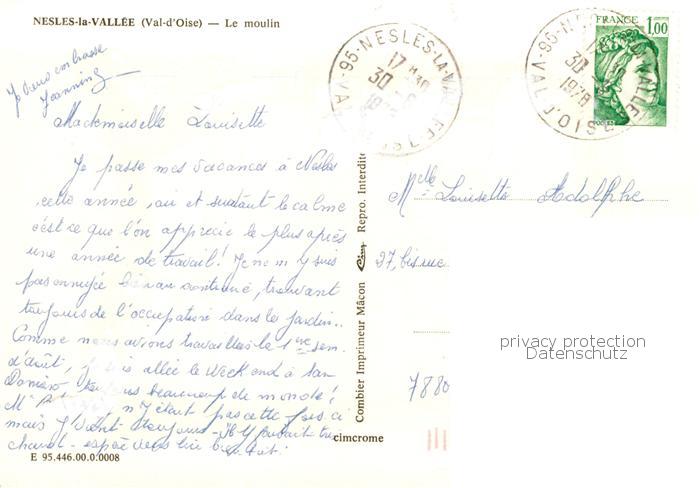 NESLES-la-VALLÉE (Val-d'Oise) — Le moulin
Je vous embrasse
Jeannine
Mademoiselle Louisette
Je passe mes vacances à Nesles
cette année, air et surtout le calme
c'est ce que l'on apprécie le plus après
une année de travail! Je ne m'y suis
pas ennuyée bien au contraire, trouvant
toujours de l'occupation dans le jardin..
Comme nous avions travaillés le 1ère sem.
d'août, je suis allée le week end à
toujours beaucoup de monde!
M n'y était pas cette fois ci
mais y vient toujours - il y faisait très
chaud - espère vous lire
E 95.446.00.0.0008
Combier Imprimeur Mâcon Cim Repro. Interdite
cimcrome
95-NESLES-LA-VALLÉE
17 H
30
VAL D'OISE
95-NESLES-LA-VALLÉE
30
1978
VAL D'OISE
FRANCE 1,00
POSTES
Melle Louisette Adolphe
37, bis rue
7880
privacy protection
Datenschutz